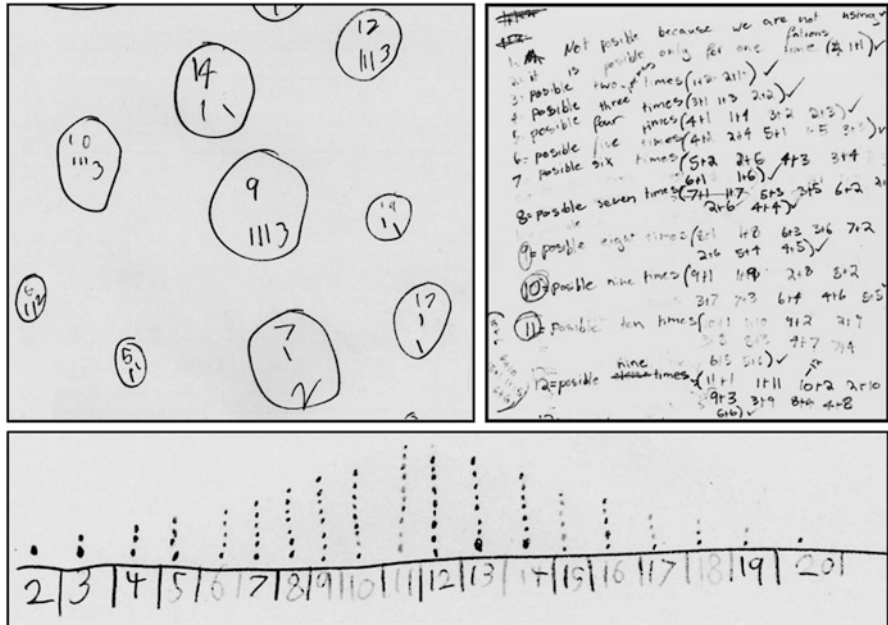 12
1113
14
1 \
10
1113
9
1113
6
5
7
1
2
12
1
1
1. Not posible because we are not using
2. it is posible only for one time ( 1+1) ✓
3= posible two times (1+2 2+1) ✓
4= posible three times (3+1 1+3 2+2) ✓
5= posible four times (4+1 1+4 3+2 2+3) ✓
6= posible five times (4+2 2+4 5+1 1+5 3+3) ✓
7= posible six times (5+2 2+5 4+3 3+4
6+1 1+6) ✓
8= posible seven times (7+1 1+7 5+3 3+5 6+2
2+6 4+4) ✓
9= posible eight times (8+1 1+8 6+3 3+6 7+2
5+4 4+5) ✓
10= posible nine times (9+1 1+9 2+8 8+2
3+7 7+3 6+4 4+6 5+5
11= posible ten times (10+1 1+10 9+2 2+9
3+8 8+3 4+7 7+4
6+5 5+6) ✓
12= posible nine times (11+1 1+11 10+2 2+10
9+3 3+9 8+4 4+8
6+6) ✓
2 3 4 5 6 7 8 9 10 11 12 13 14 15 16 17 18 19 20